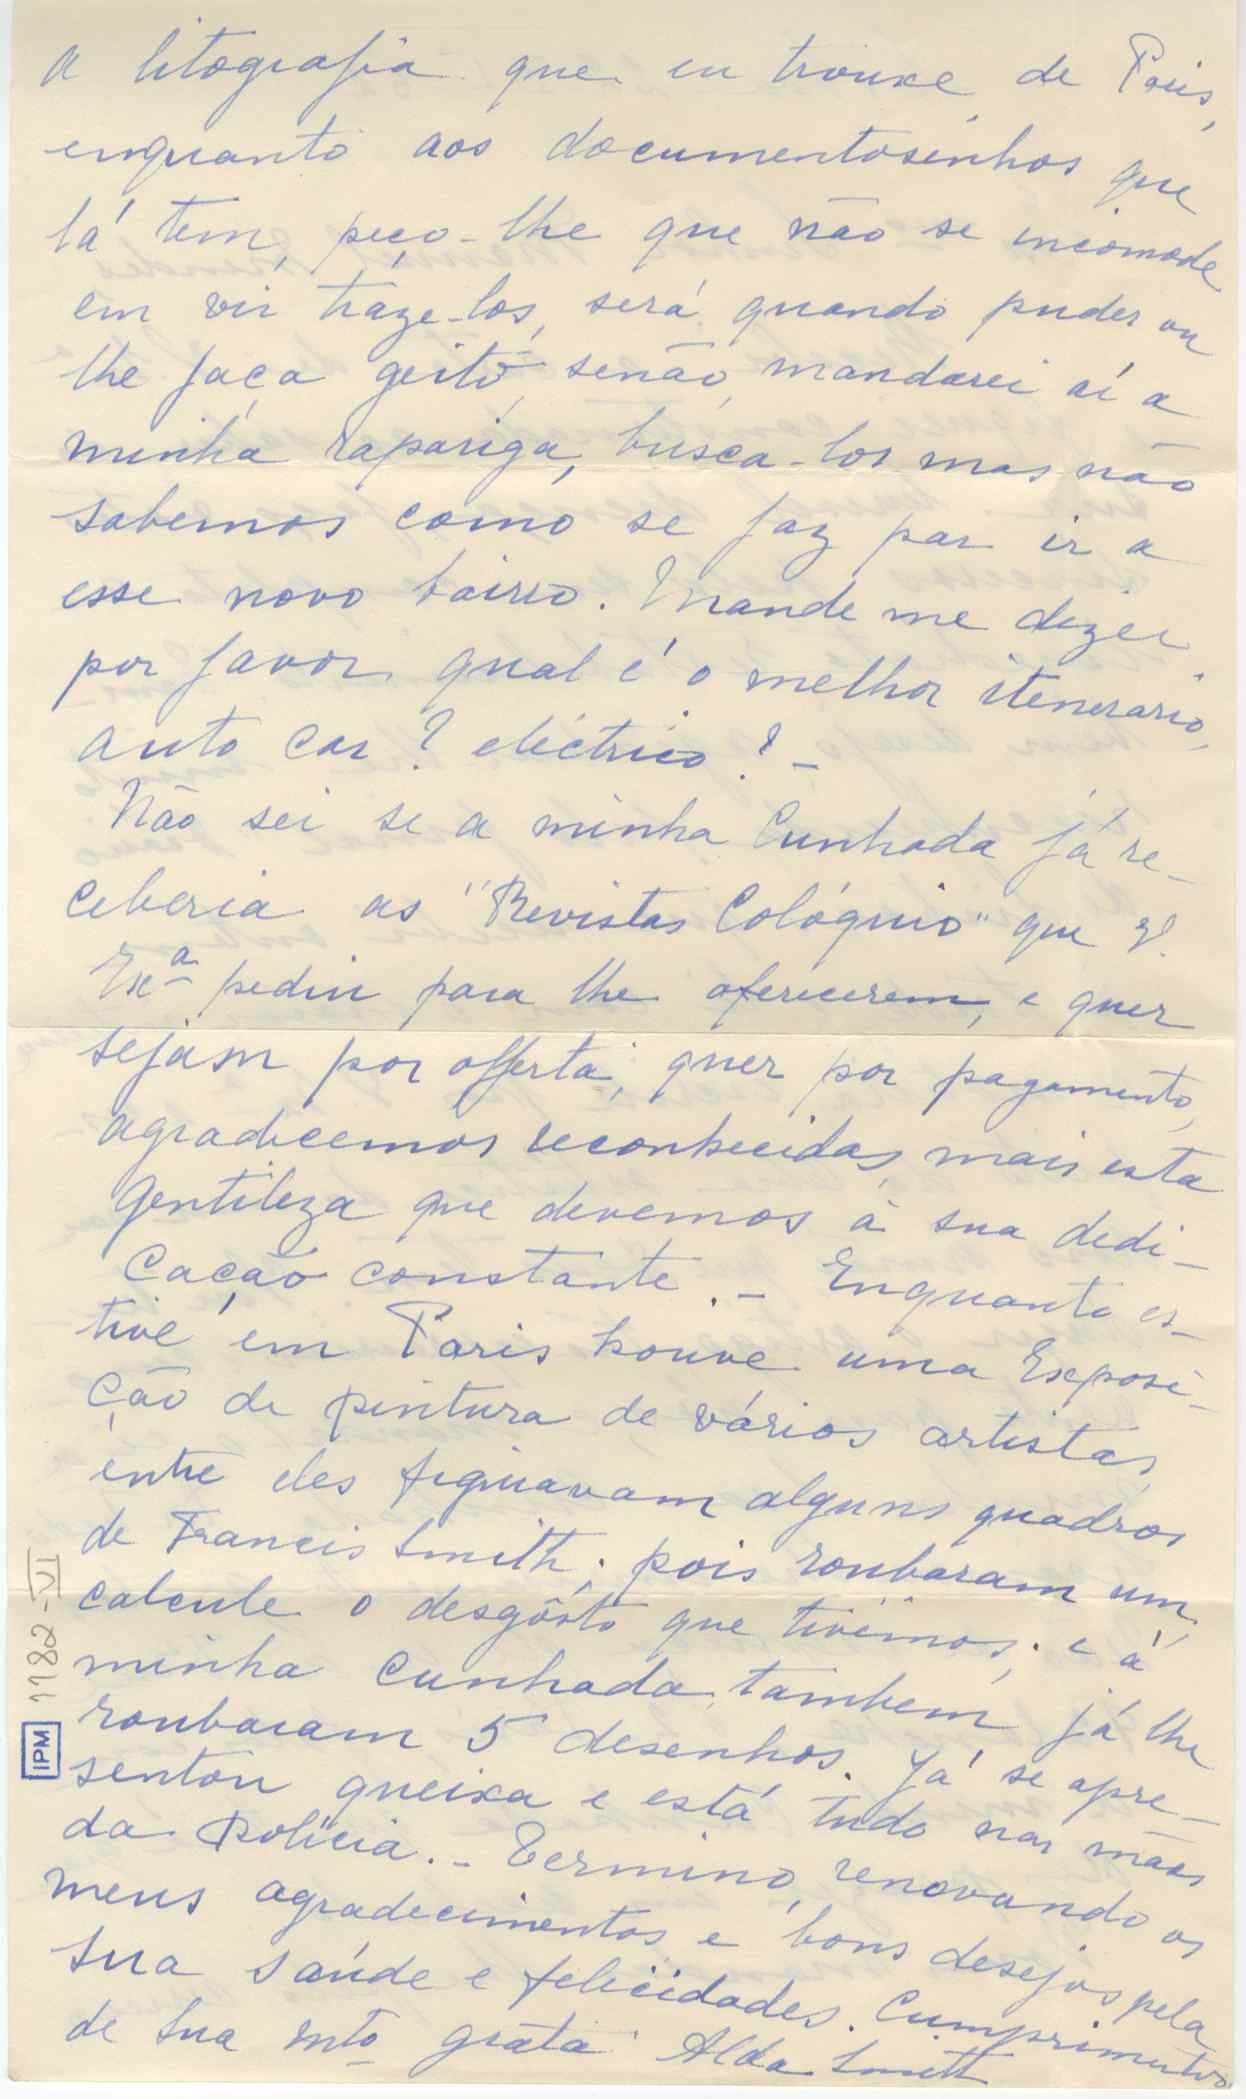 a litografia que eu trouxe de Paris,
enquanto aos documentosinhos que
lá tem, peço-lhe que não se incomode
em vir traze-los, será quando puder ou
lhe faça geito, senão, mandarei aí a
minha rapariga, busca-los mas não
sabemos como se faz par ir a
esse novo bairro. Mande me dizer
por favor qual é o melhor itenerario,
auto car? eléctrico? -
Não sei se a minha Cunhada já re-
ceberia as "Revistas Colóquio" que V.
Exª pediu para lhe oferecerem, e quer
sejam por offerta, quer por pagamento,
agradecemos reconhecidas, mais esta
gentileza que devemos à sua dedi-
cação constante. - Enquanto es-
tive em Paris houve uma Exposi-
ção de pintura de vários artistas,
entre eles figuravam alguns quadros
de Francis Smith; pois roubaram um,
calcule o desgôsto que tivémos; e á
minha cunhada, tambem já lhe
roubaram 5 desenhos. Já se apre-
sentou queixa e está tudo nas mãos
da Policia. - Termino, renovando os
meus agradecimentos e bons desejos pela
sua saúde e felicidades. Cumprimentos
de sua mto grata Alda Smith
1182-VI
IPM